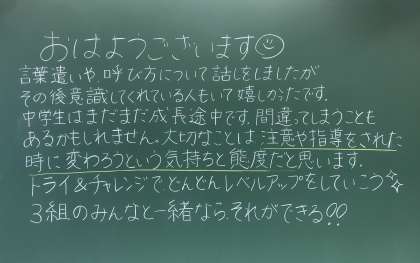 おはようございます☺
言葉遣いや、呼び方について話しをしましたが
その後意識してくれている人もいて嬉しかったです。
中学生はまだまだ成長途中です。間違ってしまうことも
あるかもしれません。大切なことは注意や指導をされた
時に変わろうという気持ちと態度だと思います。
トライ&チャレンジで、どんどんレベルアップをしていこう✧
3組のみんなと一緒なら、それができる!!